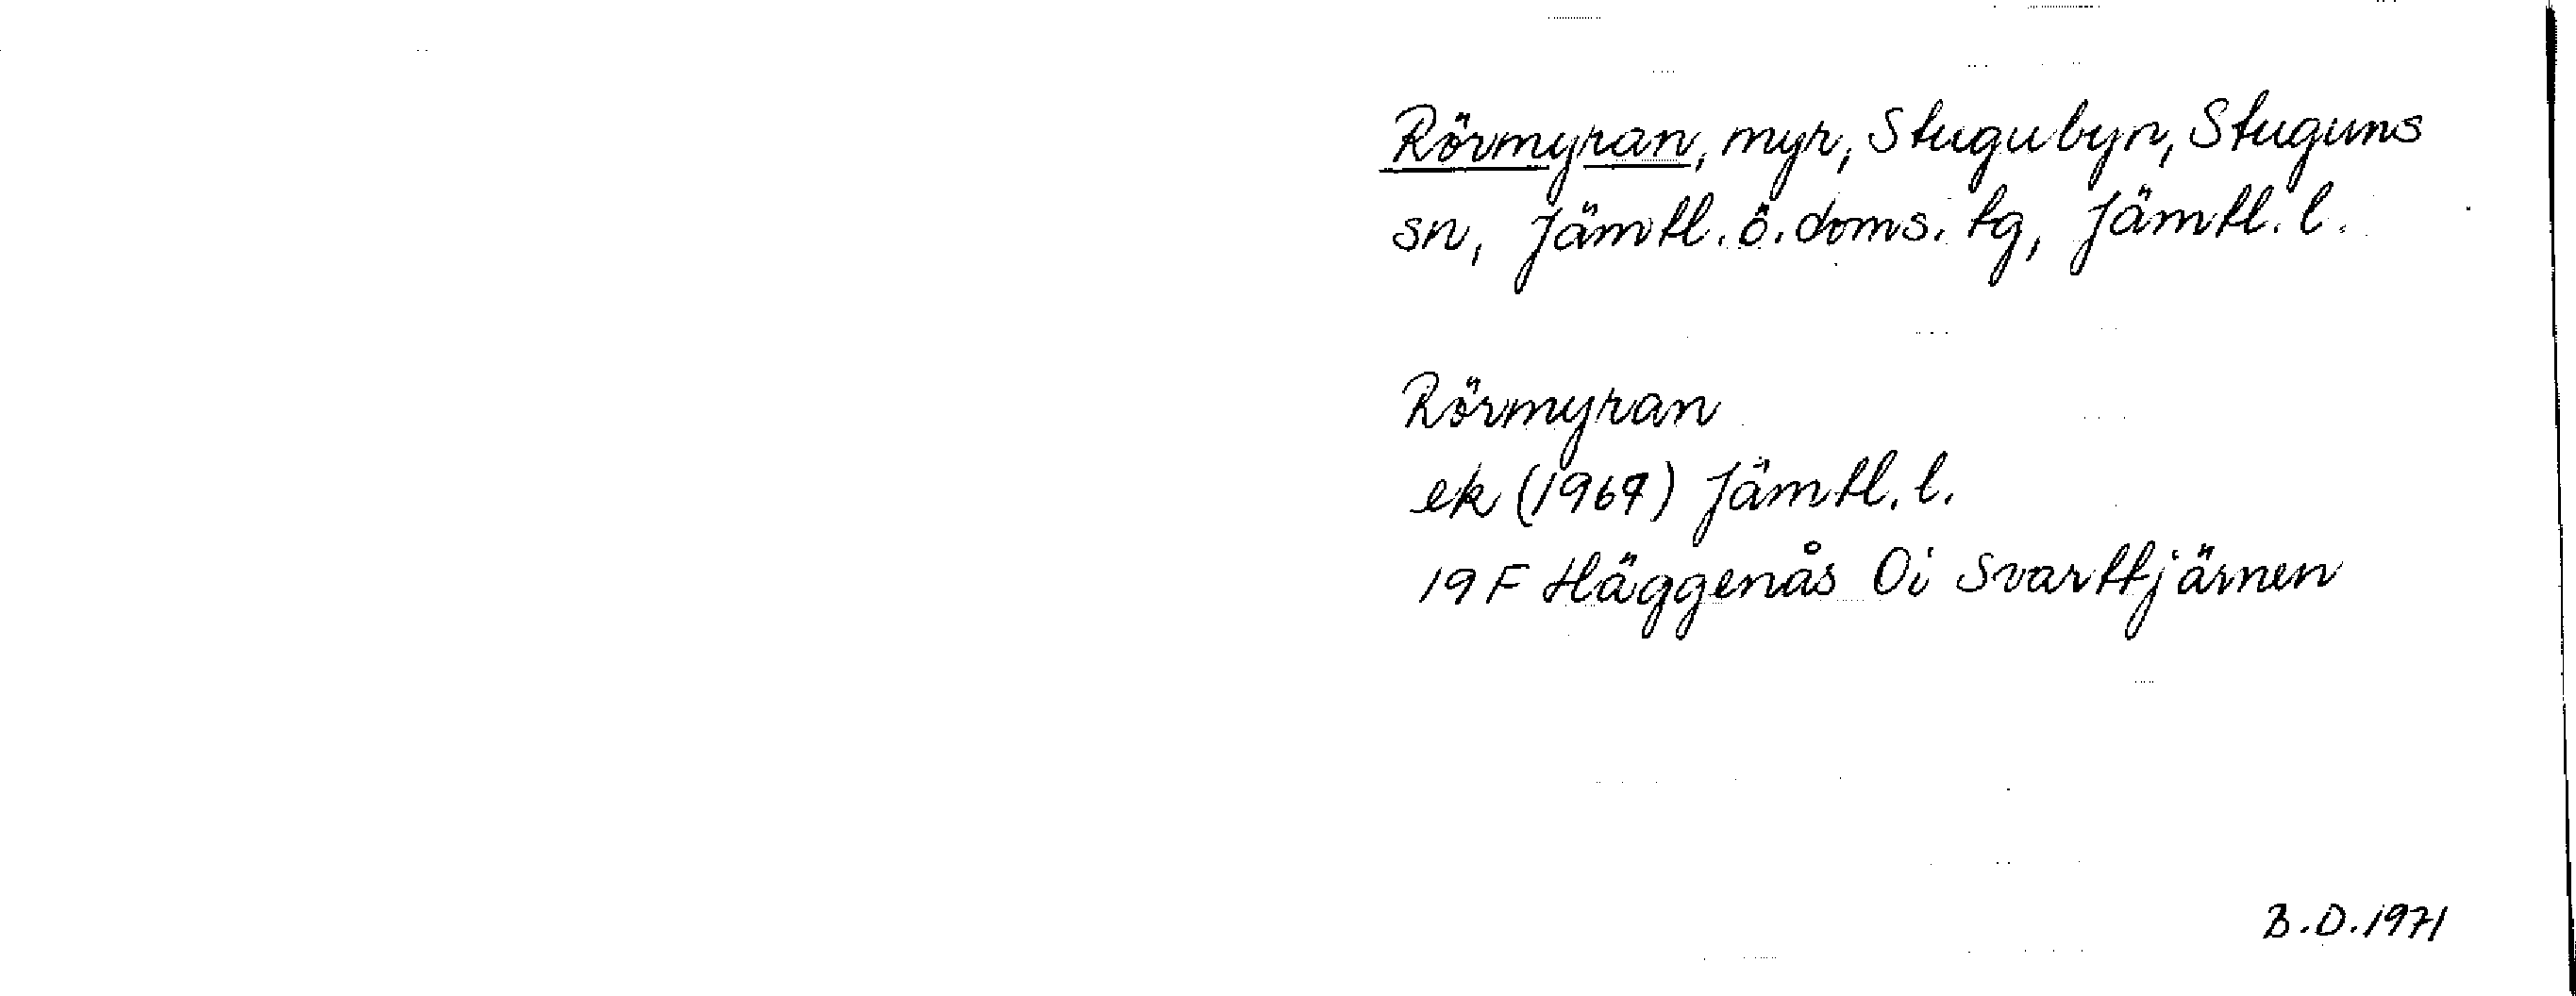 Rörmyran, myr, Stugubyn, Stuguns
sn, Jämtl. ö. doms. tg, Jämtl. l.
Rörmyran
ek (1967) Jämtl. l.
19 F Häggenås 0i Svarttjärnen
B.D. 1971